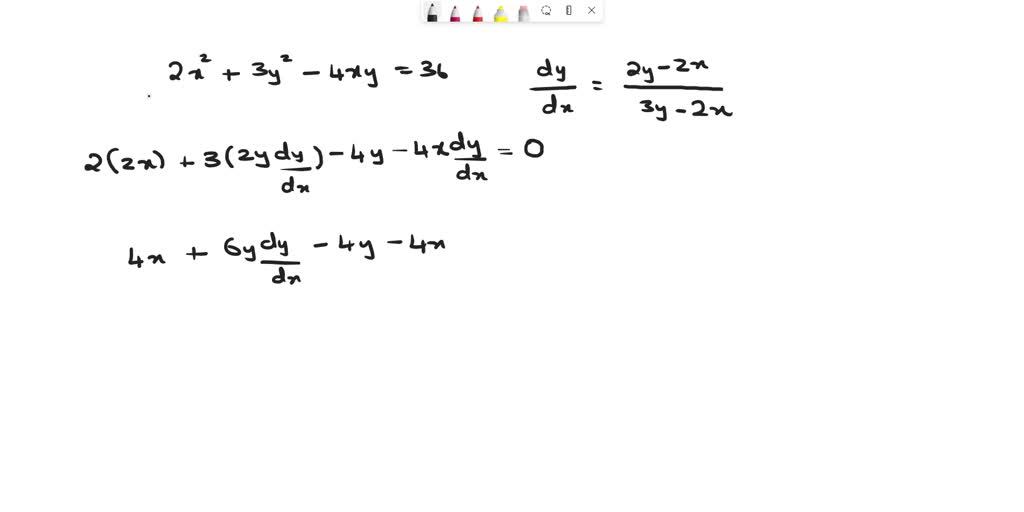 2x² + 3y² - 4xy = 36
dy/dx = (2y - 2x)/(3y - 2x)
2(2x) + 3(2y dy/dx) - 4y - 4x dy/dx = 0
4x + 6y dy/dx - 4y - 4x